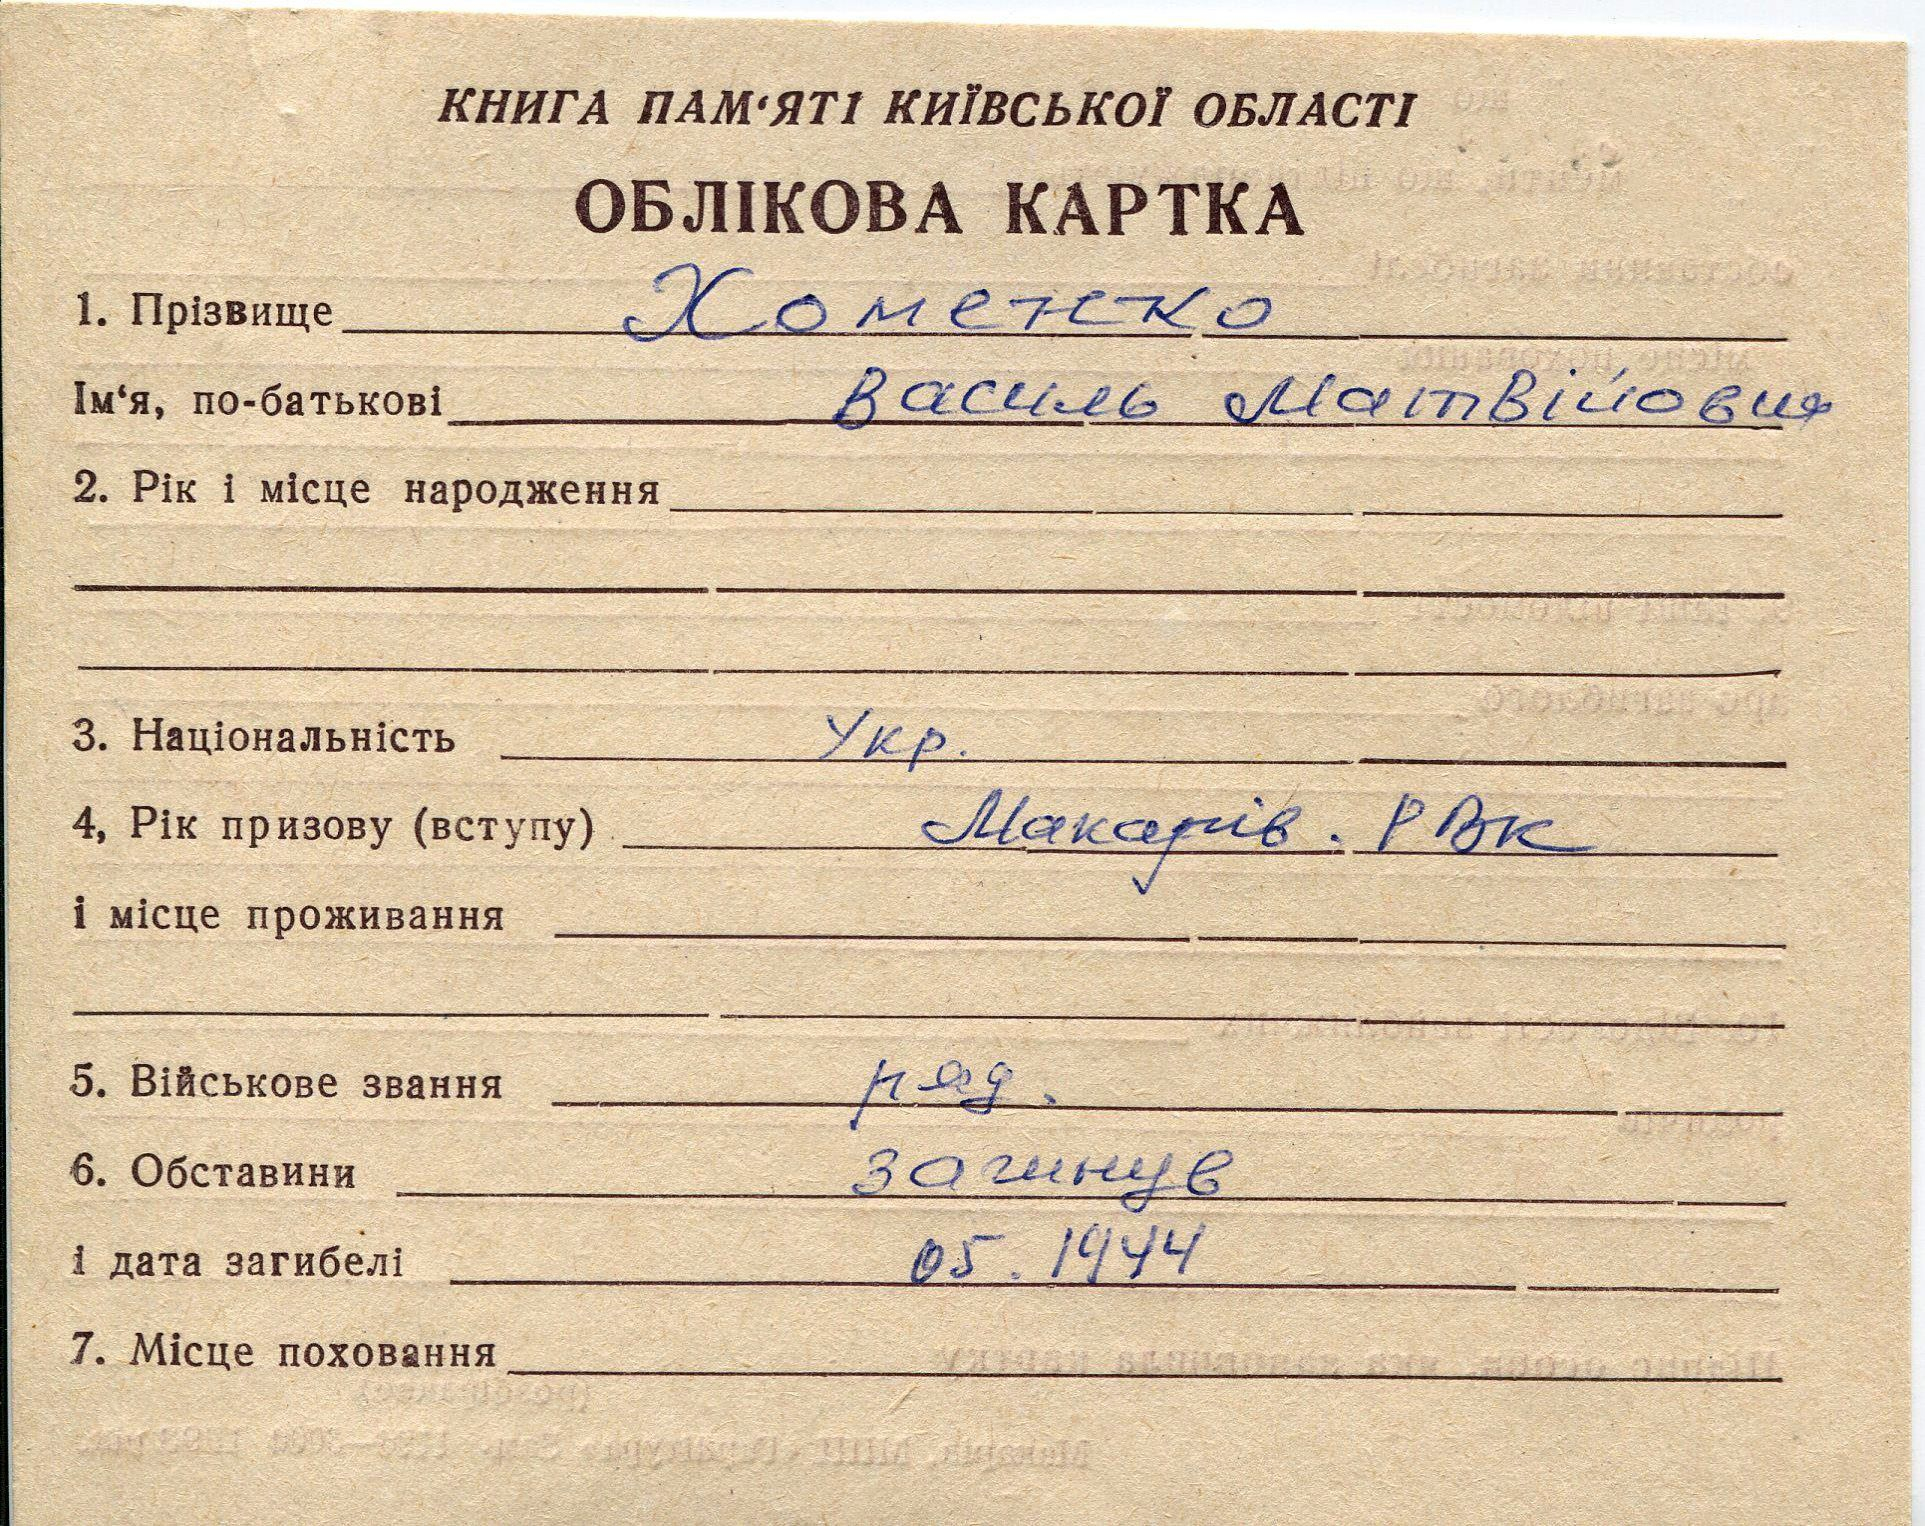 КНИГА ПАМ‘ЯТІ КИЇВСЬКОЇ ОБЛАСТІ
ОБЛІКОВА КАРТКА
1. Прізвище Хоменко
Ім‘я, по-батькові Василь Матвійович
2. Рік і місце народження
3. Національність Укр.
4, Рік призову (вступу) Макарів. РВК
і місце проживання
5. Військове звання ряд.
6. Обставини загинув
і дата загибелі 05. 1944
7. Місце поховання